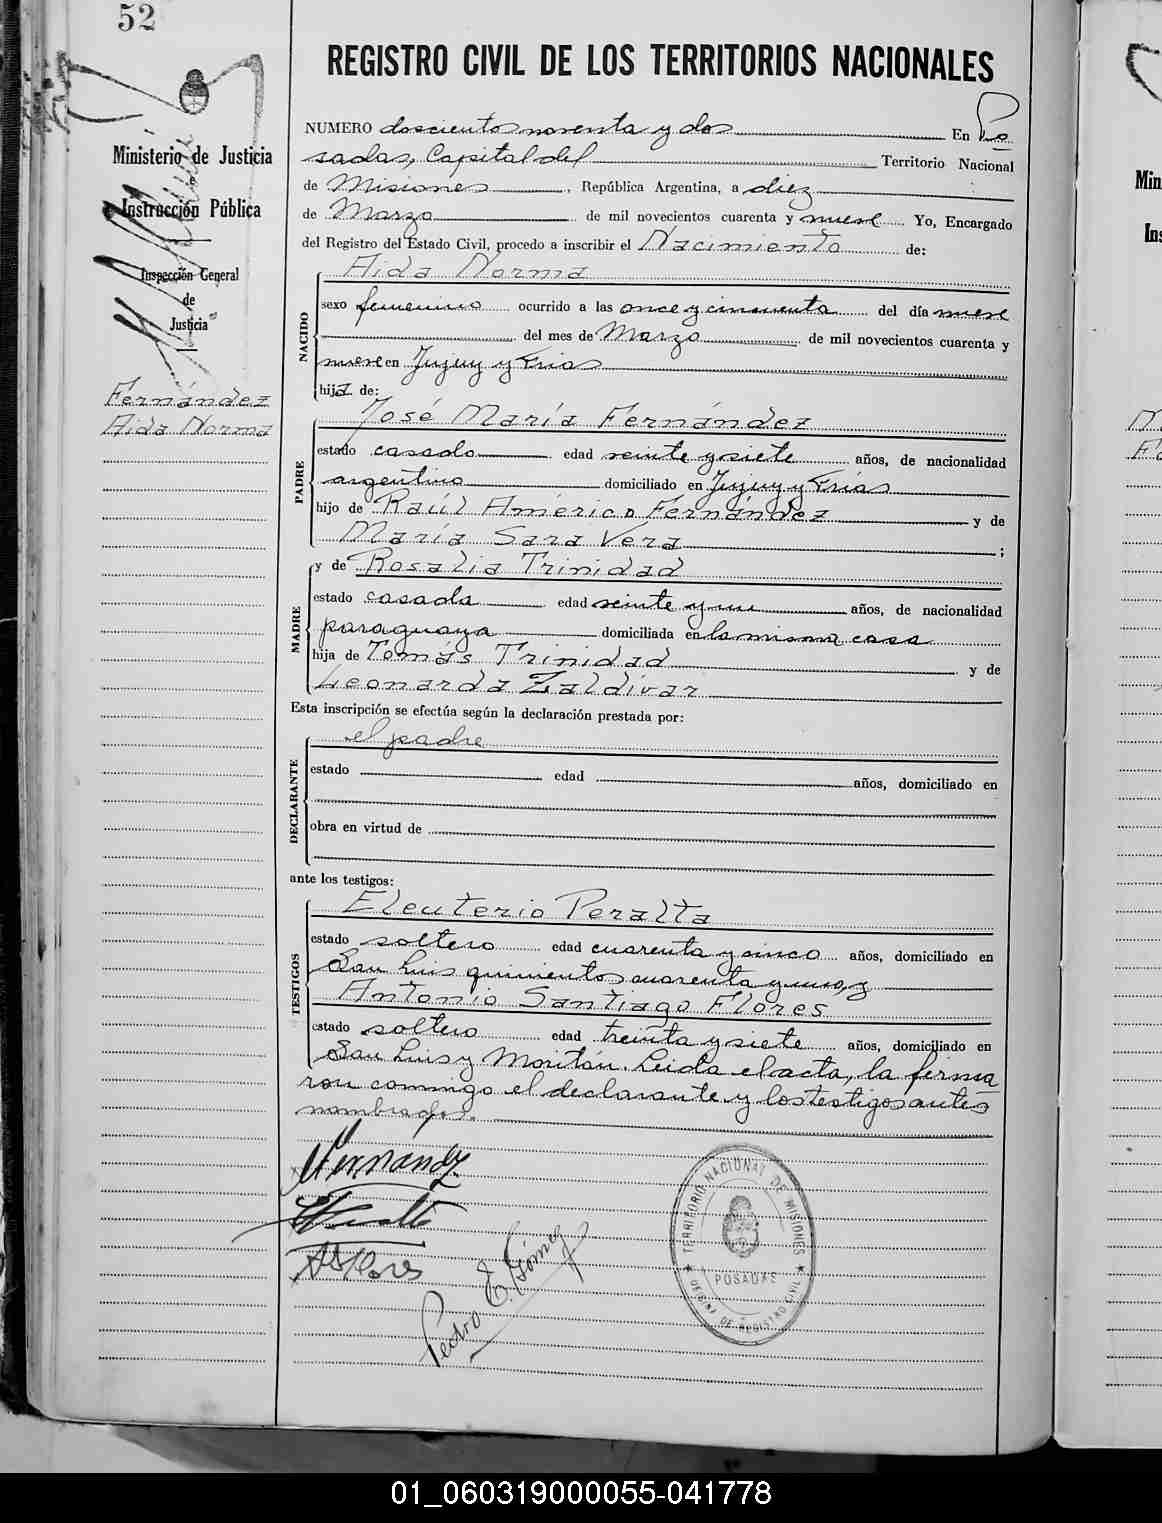 52
REGISTRO CIVIL DE LOS TERRITORIOS NACIONALES
Ministerio de Justicia
e
Instrucción Pública
Inspección General
de
Justicia
Fernández
Aida Norma
NUMERO doscientos noventa y dos En Po
sadas, Capital del Territorio Nacional
de Misiones, República Argentina, a diez
de Marzo de mil novecientos cuarenta y nueve Yo, Encargado
del Registro del Estado Civil, procedo a inscribir el Nacimiento de:
NACIDO
Aida Norma
sexo femenino ocurrido a las once y cincuenta del día nueve
del mes de Marzo de mil novecientos cuarenta y
nueve en Jujuy y Frias
hija de:
PADRE
José María Fernández
estado casado edad veinte y siete años, de nacionalidad
argentino domiciliado en Jujuy y Frías
hijo de Raúl Américo Fernández y de
María Sara Vera ;
MADRE
y de Rosalia Trinidad
estado casada edad veinte y un años, de nacionalidad
paraguaya domiciliada en la misma casa
hija de Tomás Trinidad y de
Leonarda Zaldívar
Esta inscripción se efectúa según la declaración prestada por:
DECLARANTE
el padre
estado edad años, domiciliado en
obra en virtud de
ante los testigos:
TESTIGOS
Eleuterio Peralta
estado soltero edad cuarenta y cinco años, domiciliado en
San Luis quinientos cuarenta y uno, y
Antonio Santiago Flores
estado soltero edad treinta y siete años, domiciliado en
San Luis y Moritán. Leida el acta, la firma
ron conmigo el declarante y los testigos antes
nombrados.
Fernandez
ASFlores
Pedro E. Gómez
TERRITORIO NACIONAL DE MISIONES
POSADAS
OFICINA DE REGISTRO CIVIL
Min
Ins
01_060319000055-041778